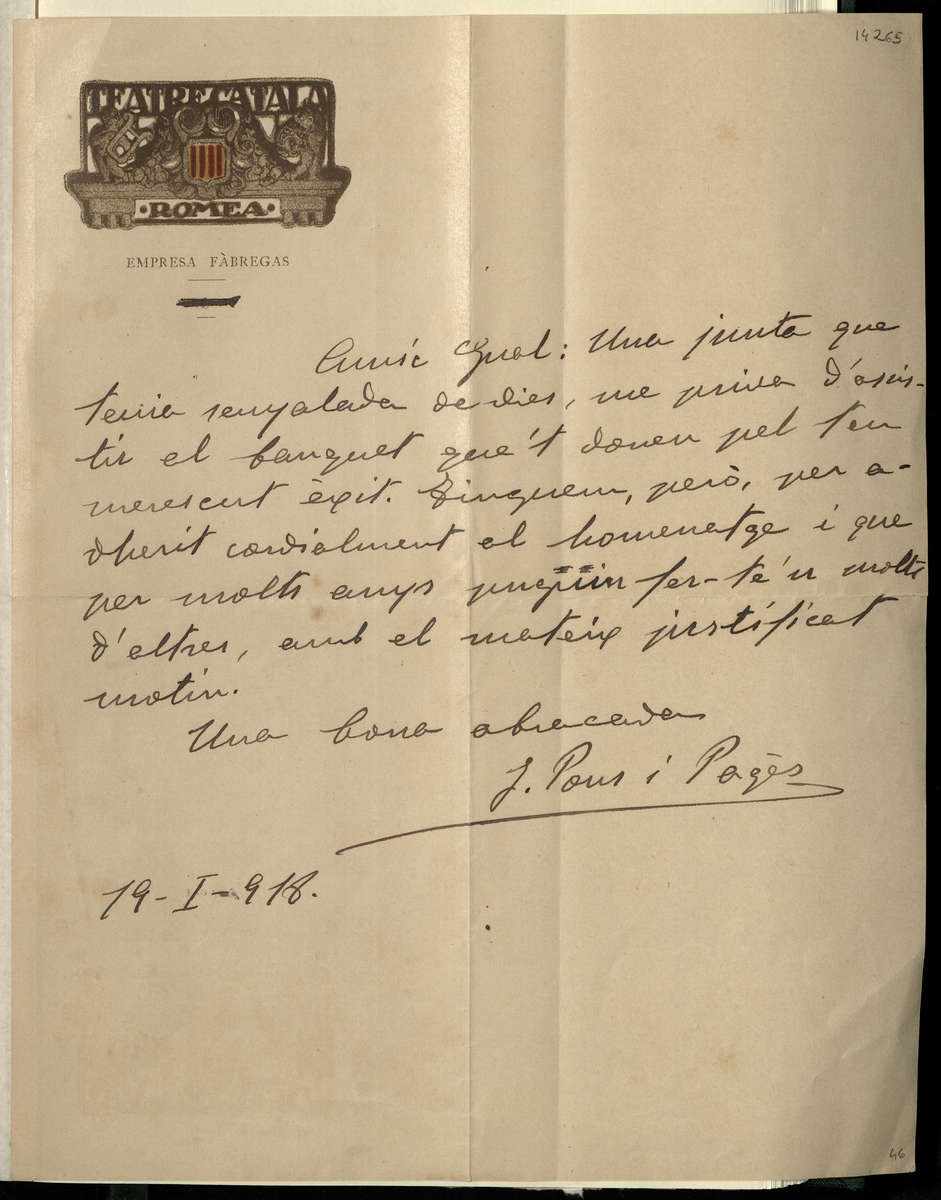 14265
TEATRE CATALA
·ROMEA·
EMPRESA FÀBREGAS
Amic Gual: Una junta que
tenia senyalada de dies, me priva d'assis-
tir al banquet que't donen pel teu
merescut èxit. Tinguem, però, per a-
dherit cordialment al homenatge i que
per molts anys puguin fer-te'n molts
d'altres, amb el mateix justificat
motiu.
Una bona abracada
J. Pous i Pagès
19-I-918.
46